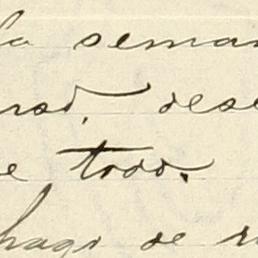 la seman
rad, dese
e todo.
hago de r